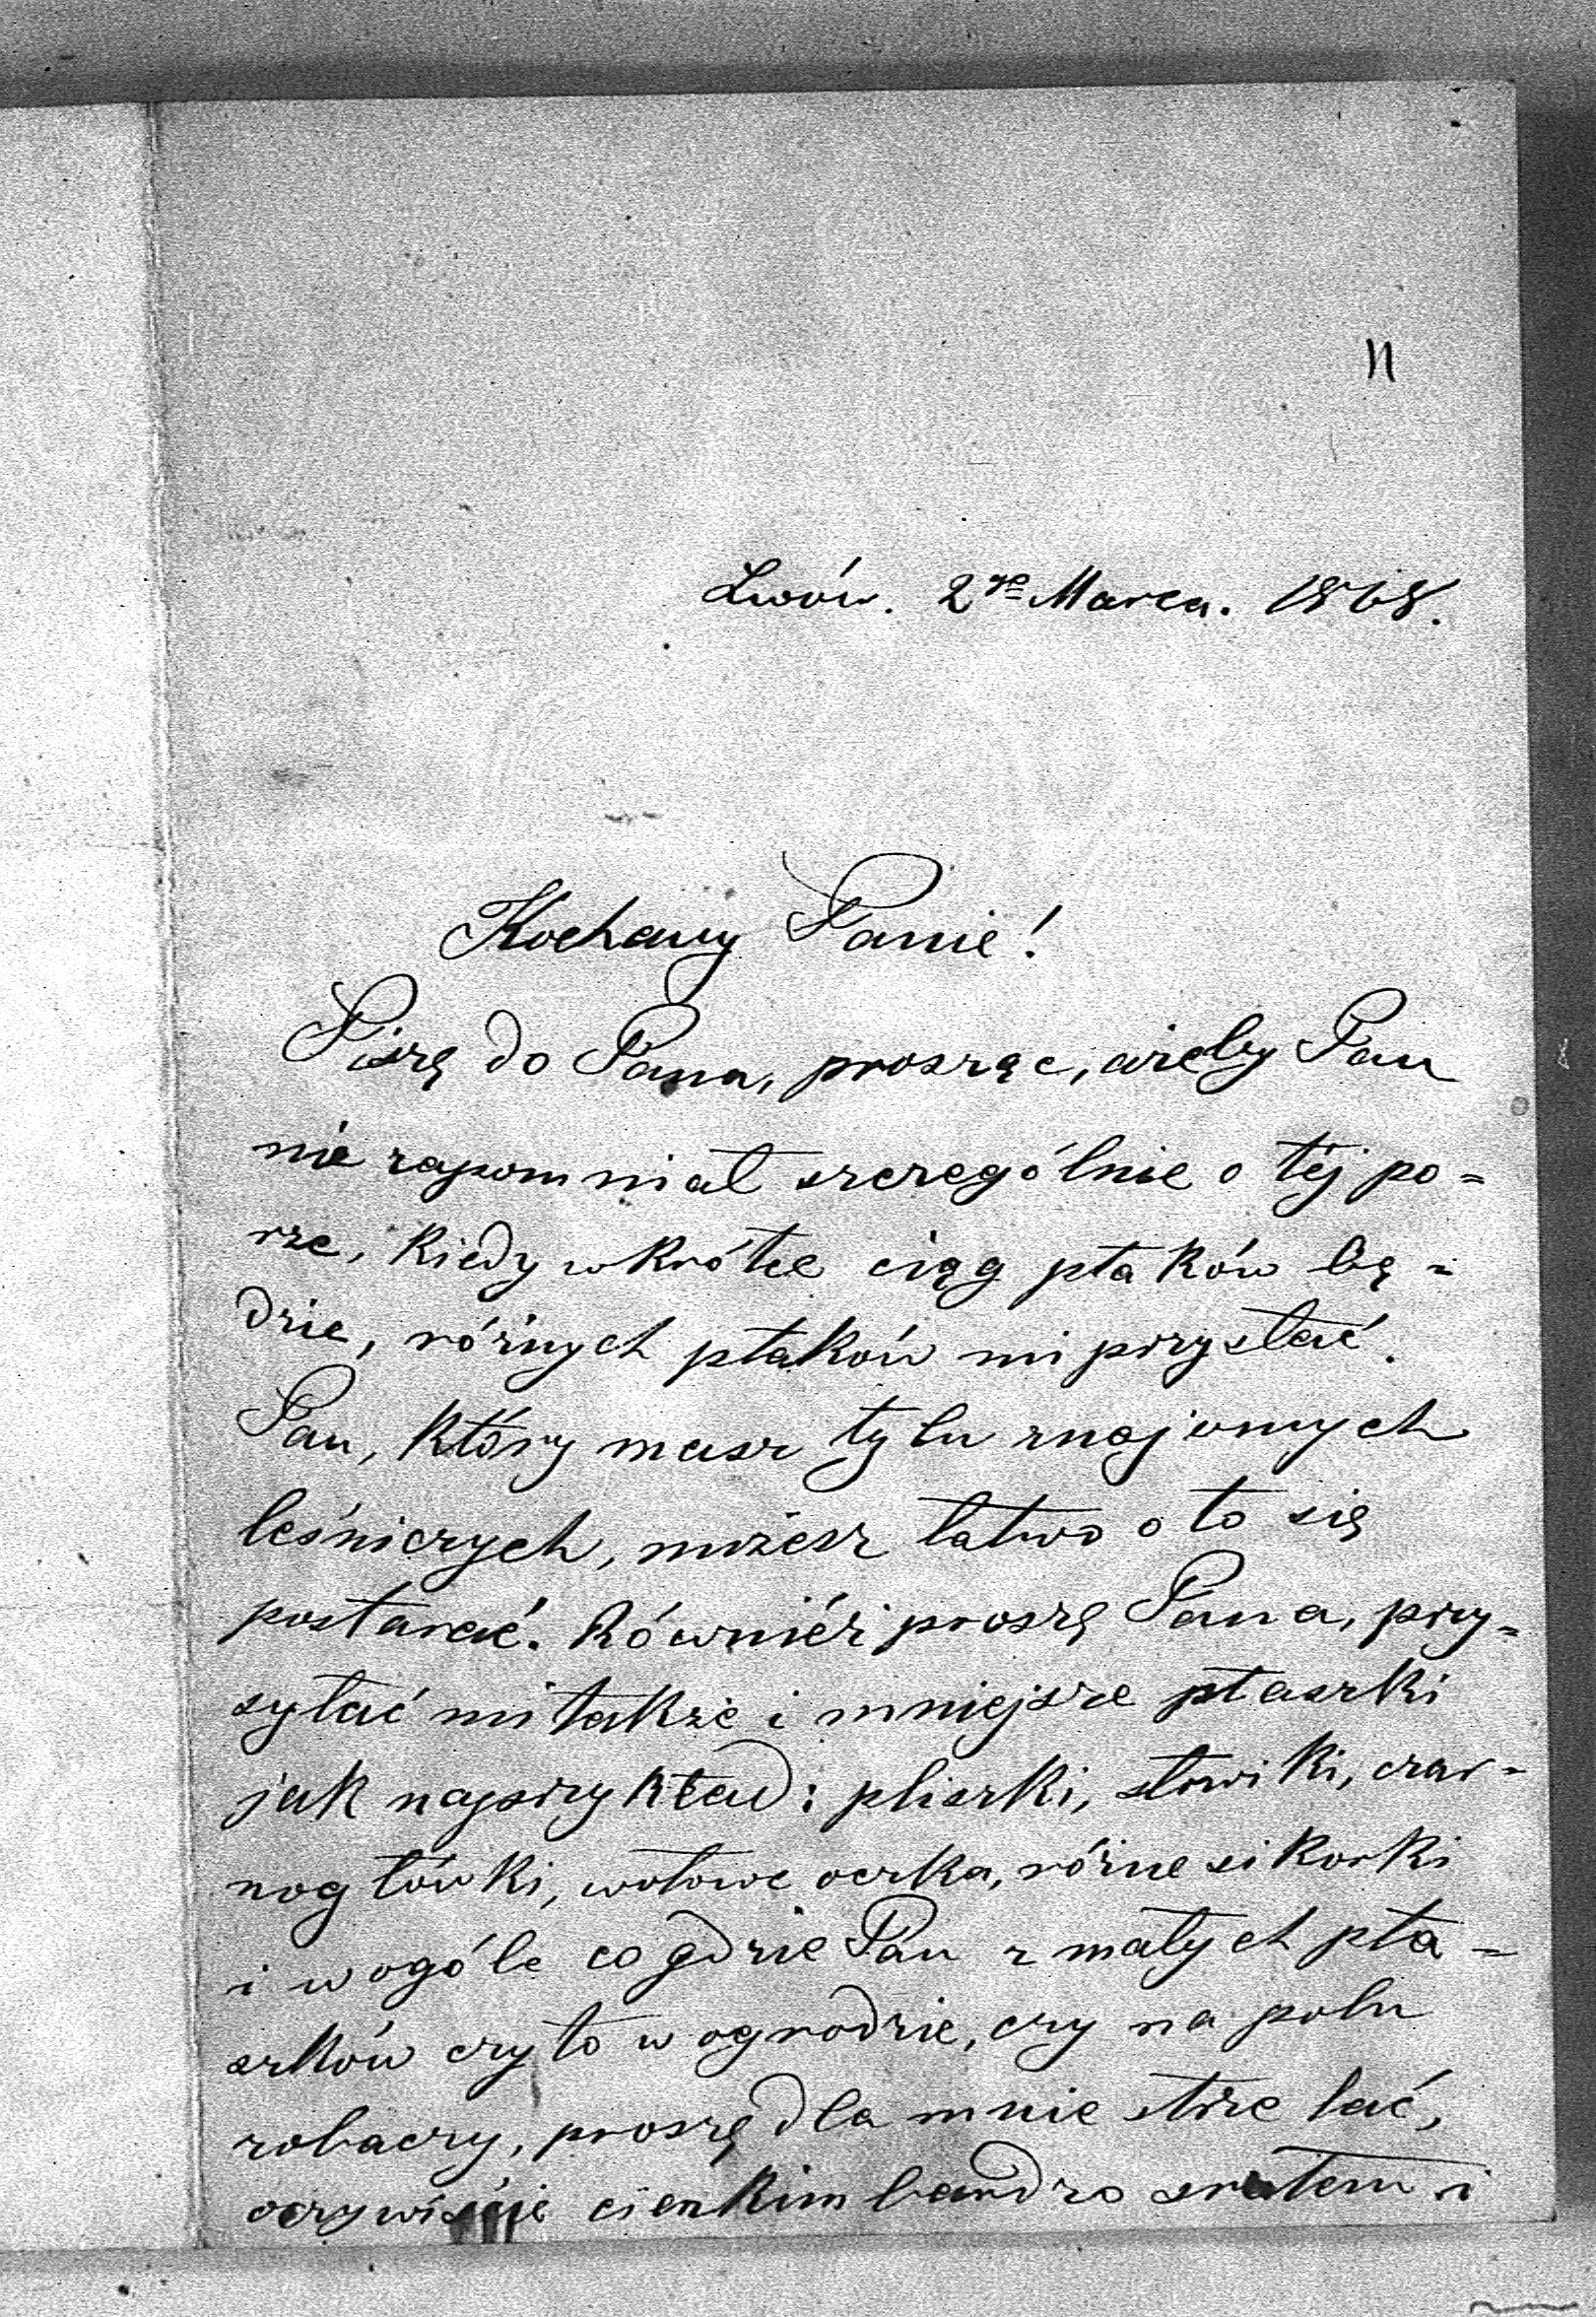 11
Lwów. 2go Marca. 1868.
Kochany Panie!
Piszę do Pana, prosząc, ażeby Pan
nie zapomniał szczególnie o téj po=
rze, kiedy wkrótce ciąg ptaków bę=
dzie, różnych ptaków mi przysłać.
Pan, który masz tylu znajomych
leśniczych, możesz łatwo o to się
postarać. Również proszę Pana, przy=
syłać mi także i mniejsze ptaszki
jak naprzykład: pliszki, słowiki, czar=
nogłówki, wołowe oczka, różne sikorki
i wogóle co gdzie Pan z małych pta=
szków czy to w ogrodzie, czy na polu
zobaczy, proszę dla mnie strzelać,
oczywiście cienkim bardzo szrutem i